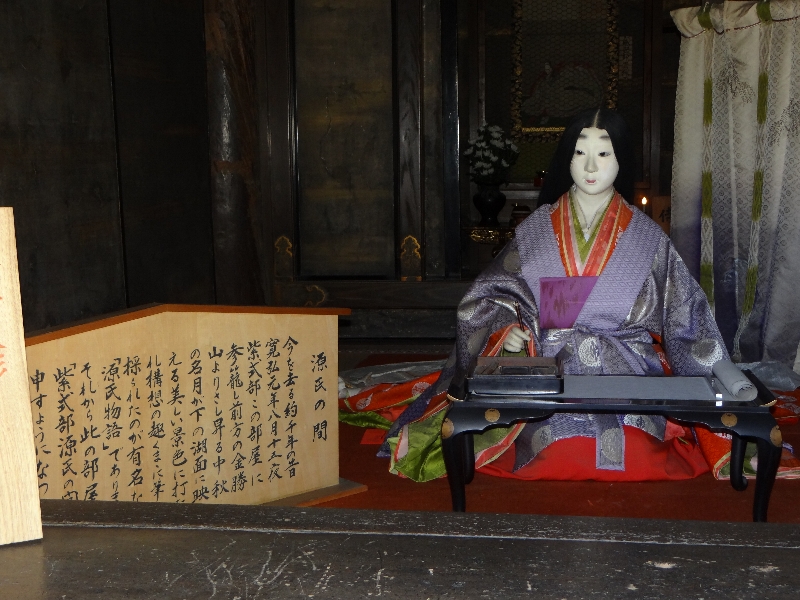 源氏の間
今を去る約千年の昔
寛弘元年八月十五夜
紫式部この部屋に
参籠し前方の金勝
山よりさし昇る中秋
の名月が下の湖面に映
える美しい景色に打
れ構想の趣くまに筆
採られたのが有名な
「源氏物語」でありま
それから此の部屋
「紫式部源氏の間
申すようになつ